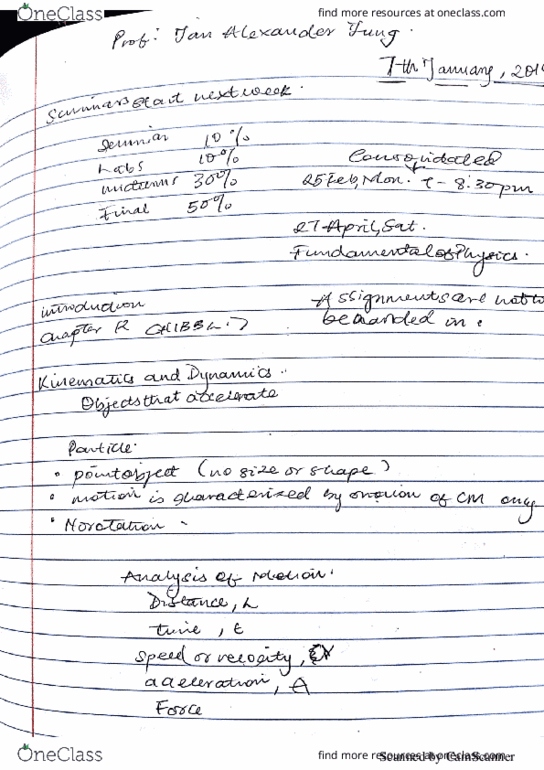 OneClass
find more resources at oneclass.com
Prof: Jan Alexander Fung.
7th January, 201
Seminars start next week.
Seminar 10%
Labs 10%
midterms 30%
Final 50%
Consolidated
25 Feb, Mon. 7 - 8:30pm
27 April, Sat.
Fundamental of Physics.
introduction
chapter R
Assignments are not to
be handed in.
Kinematics and Dynamics..
Objects that accelerate
Particle.
• point object (no size or shape)
• motion is characterized by motion of CM only
• No rotation -
Analysis of Motion.
Distance, L
time, t
speed or velocity,
acceleration, A
Force
OneClass
find more resources at oneclass.com
Scanned by CamScanner